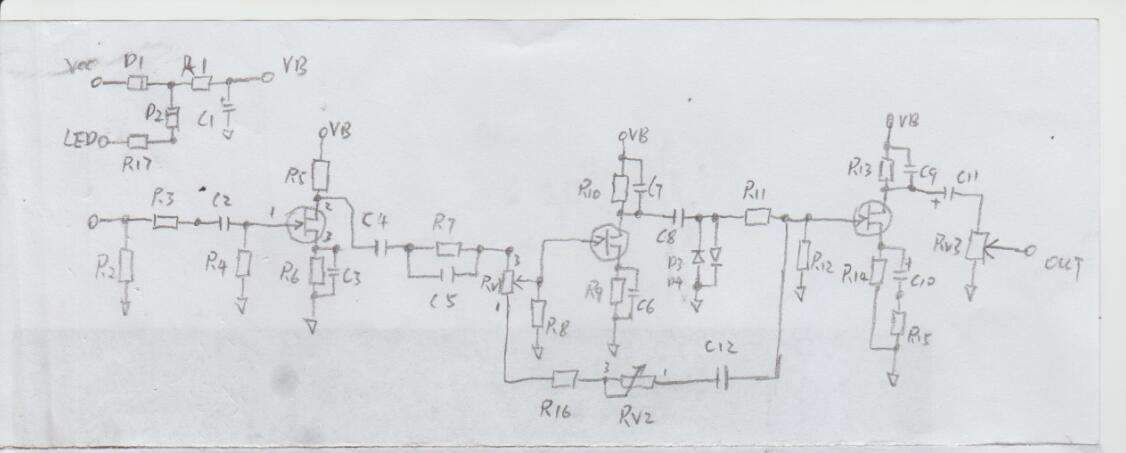 Vcc D1 R1 VB
D2 C1
LED R17
VB VB VB
R5 R10 C7 R13 C9 C11
R3 C2 1 2 C4 R7 R11
3 C8 RV3 OUT
R2 R4 R6 C3 C5 RV 3 R9 C6 D3 R12 R14 C10
1 R8 D4 R15
R16 3 RV2 1 C12